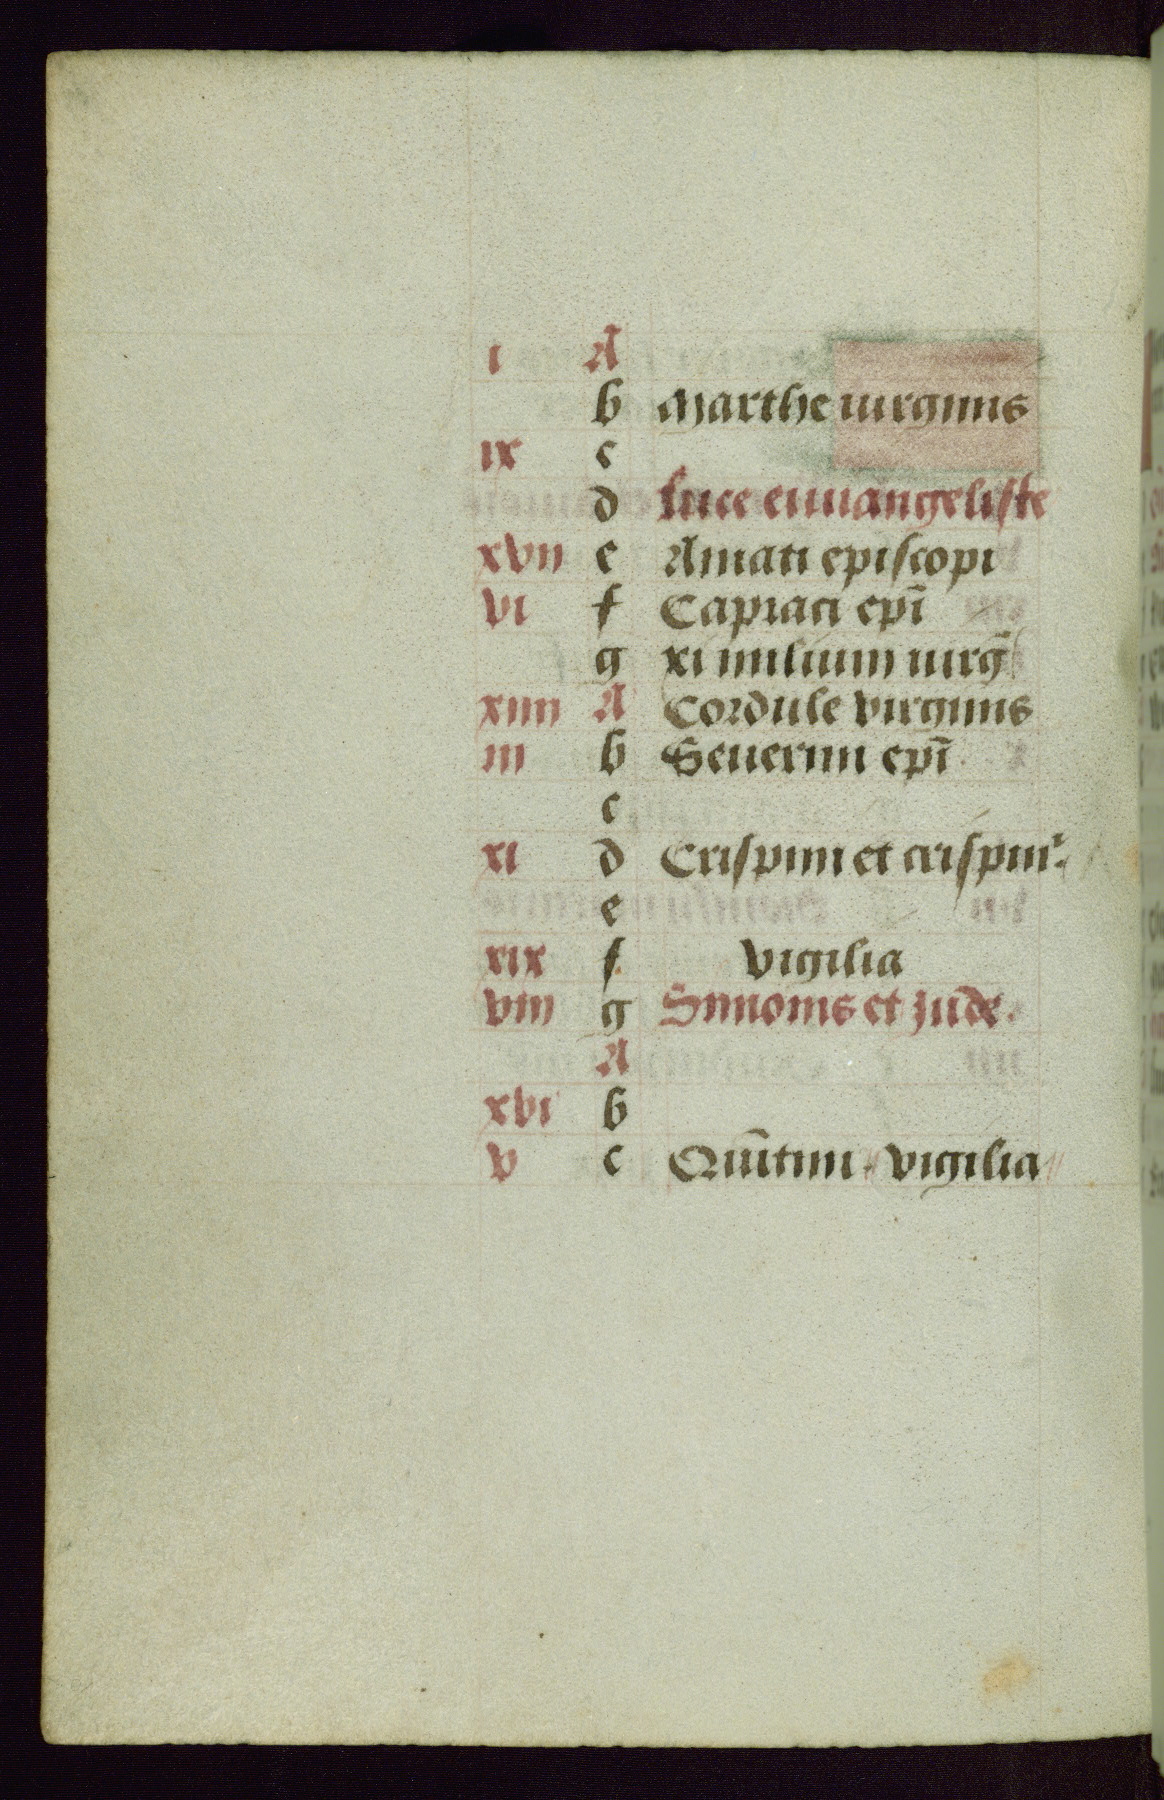 i A
b Marthe uirginis
ix c
d Luce euuangeliste
xvii e Amati episcopi
vi f Capraci ep̄i
g xi milium uirḡ
xiiii A Cordule virginis
iii b Seuerini ep̄i
c
xi d Crispini et crispini᷑.
e
xix f vigilia
viii g Simonis et Jude.
A
xvi b
v c Quītini. vigilia